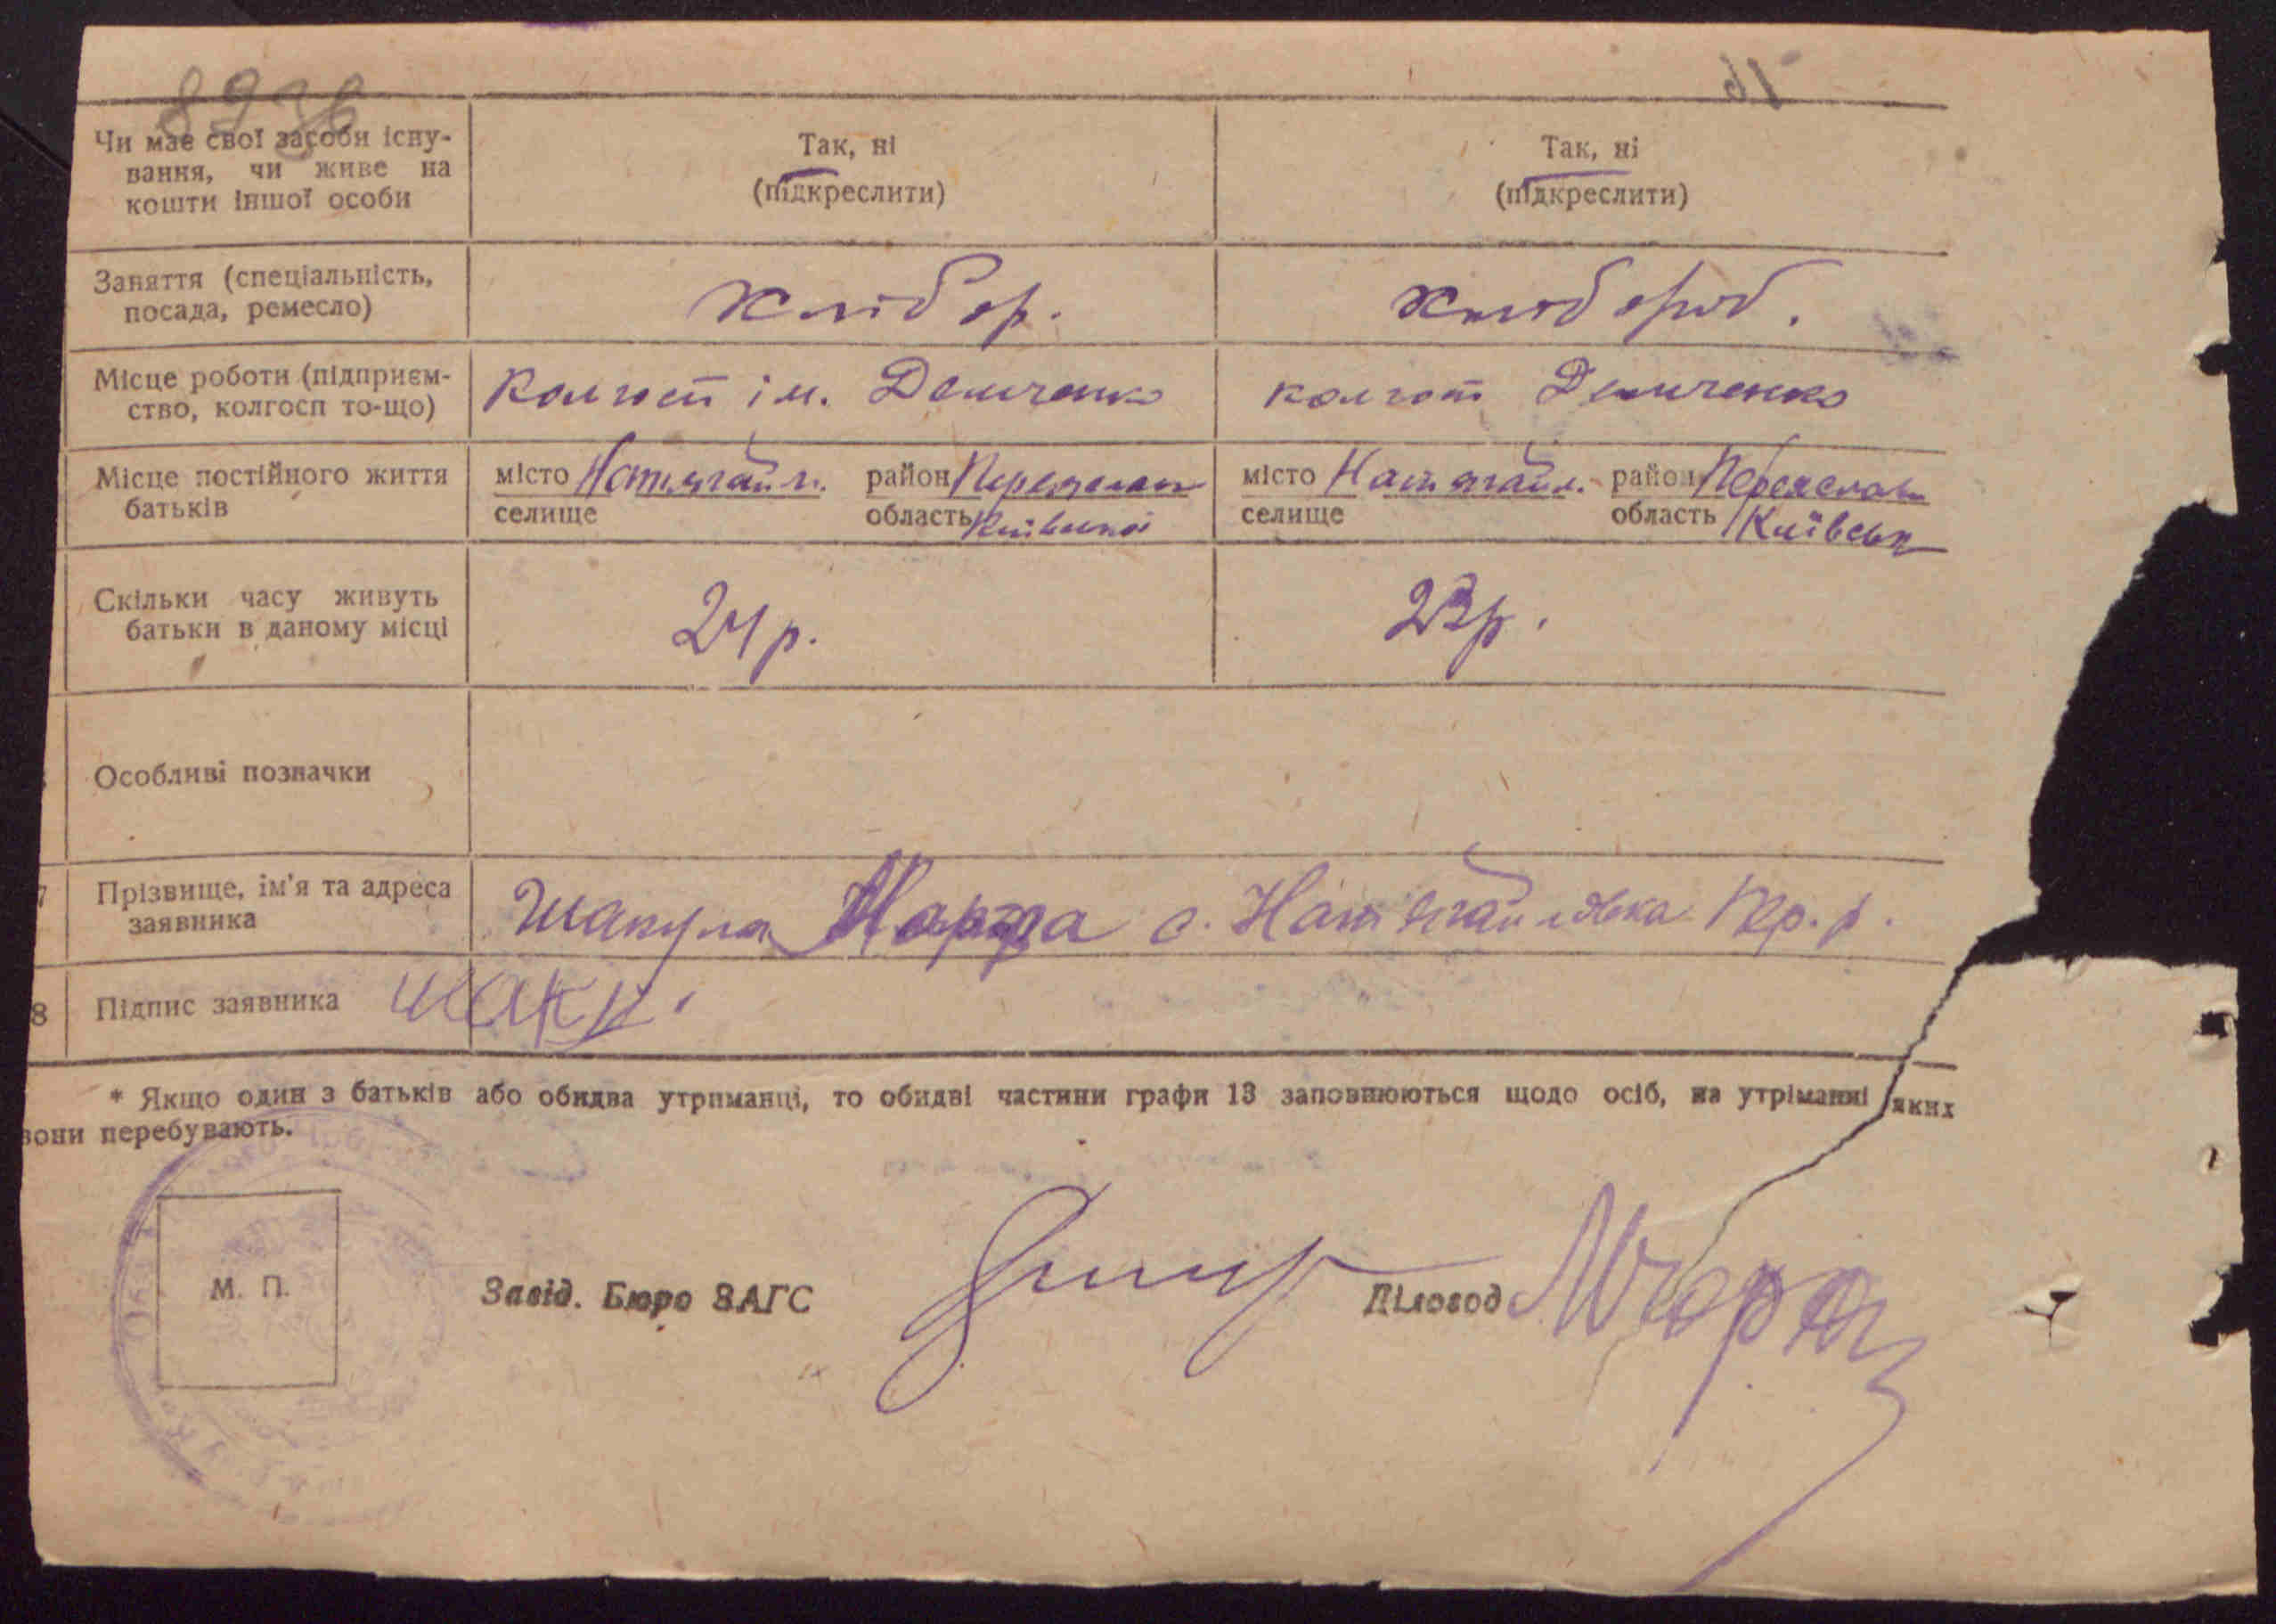 8936
Чи має свої засоби існу-
вання, чи живе на
кошти іншої особи
Так, ні
(підкреслити)
Так, ні
(підкреслити)
Заняття (спеціальність,
посада, ремесло)
хлібор.
хлібороб.
Місце роботи (підприєм-
ство, колгосп то-що)
Колгосп ім. Демченко
колгосп Демченко
Місце постійного життя
батьків
місто Натягайл. район
селище область Київської
місто Натягайл. район Переяслав
селище область Київськ
Скільки часу живуть
батьки в даному місці
24 р.
23 р.
Особливі позначки
7 Прізвище, ім'я та адреса
заявника
Шакула Марфа с. Натягайлівка Пер. р.
8 Підпис заявника
Шаку.
* Якщо один з батьків або обидва утриманці, то обидві частини графи 13 заповнюються щодо осіб, на утріманні яких
вони перебувають.
М. П.
Завід. Бюро ЗАГС
Діловод